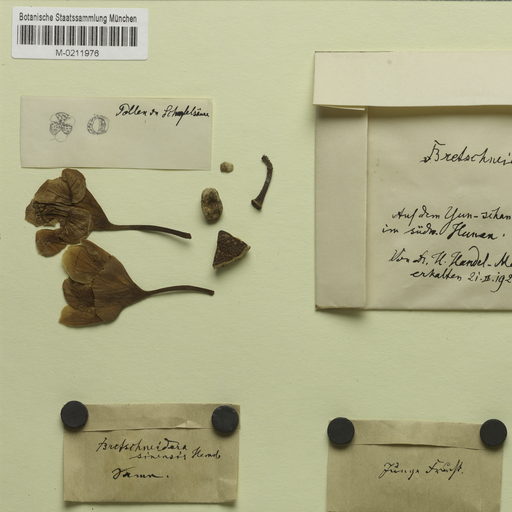 Botanische Staatssammlung München
M-0211976
Pollen in
Bretschnei
Auf dem Yun-schan
im südw. Hunan.
Von Dr. H. Handel-M
erhalten 21. 192
Bretschneidera
sinensis Hemsl.
Junge Frucht.